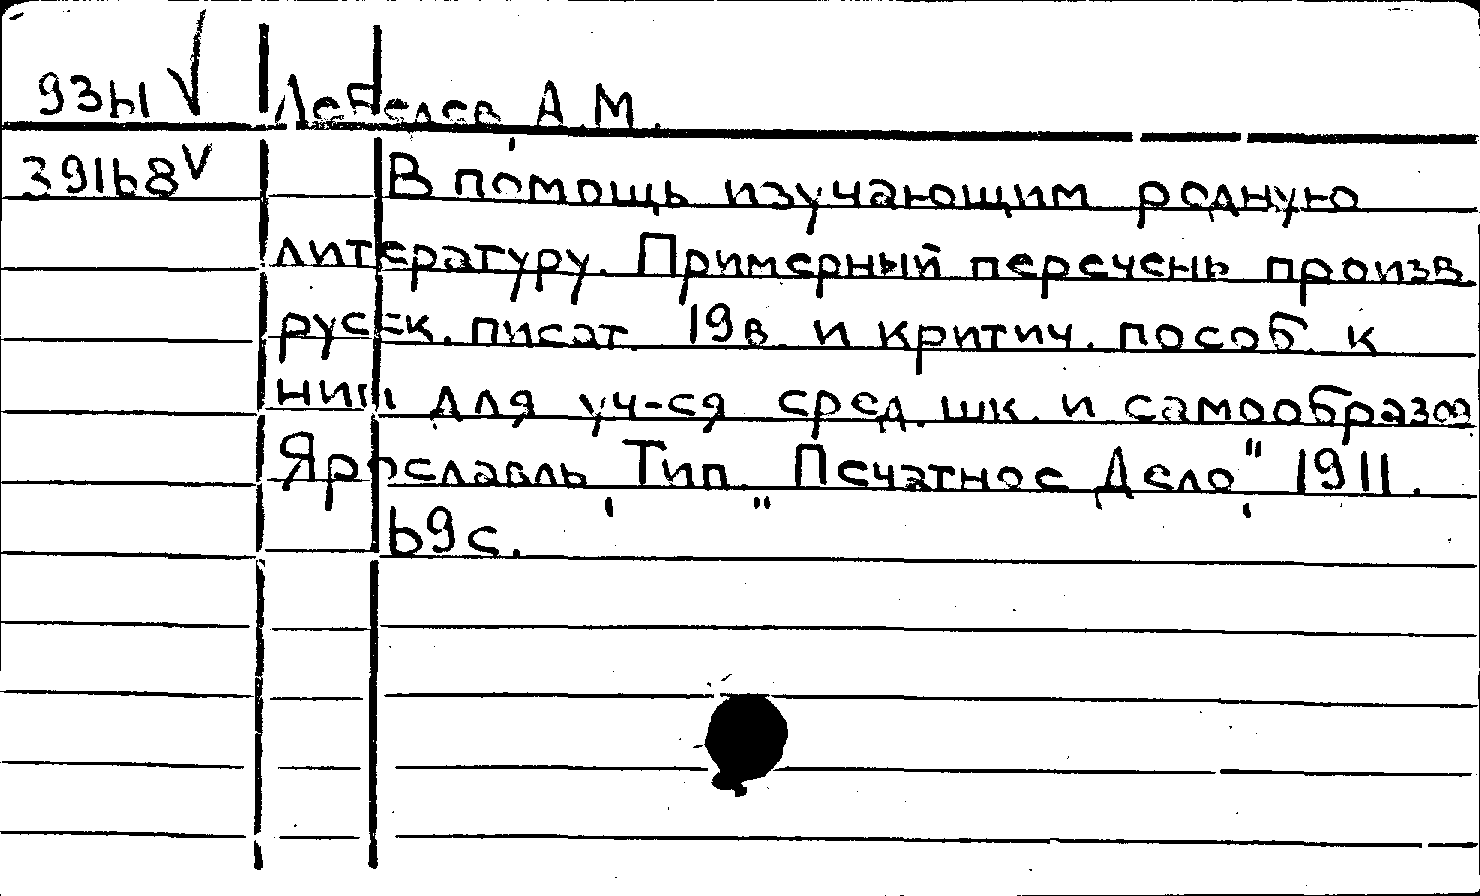 9361 V Лебедев, А.М.
39168 V В помощь изучающим родную
литературу. Примерный перечень произв
русск. писат. 19в. и критич. пособ. к
ним для уч-ся сред. шк. и самообразов
Ярославль, Тип. "Печатное Дело", 1911.
69с.